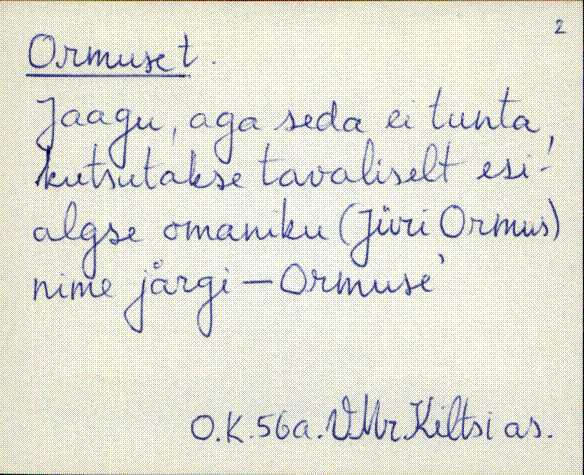 2
Ormuset.
Jaagu, aga seda ei tunta,
kutsutakse tavaliselt esi-
algse omaniku (Jüri Ormus)
nime järgi – Ormuse'
O.K. 56a. VMr. Kiltsi as.